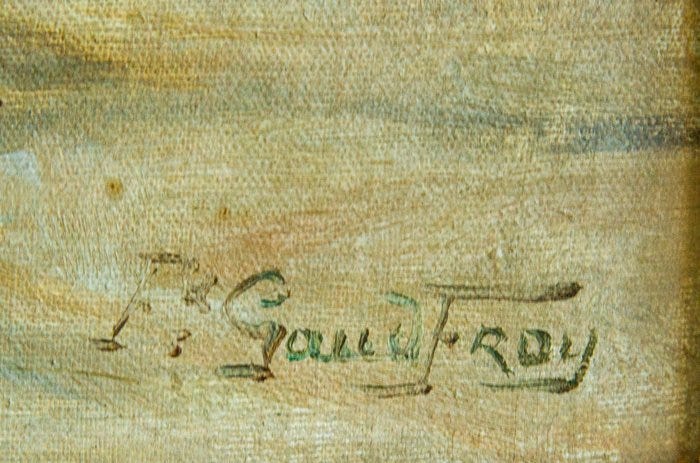 Fr GaudFroy